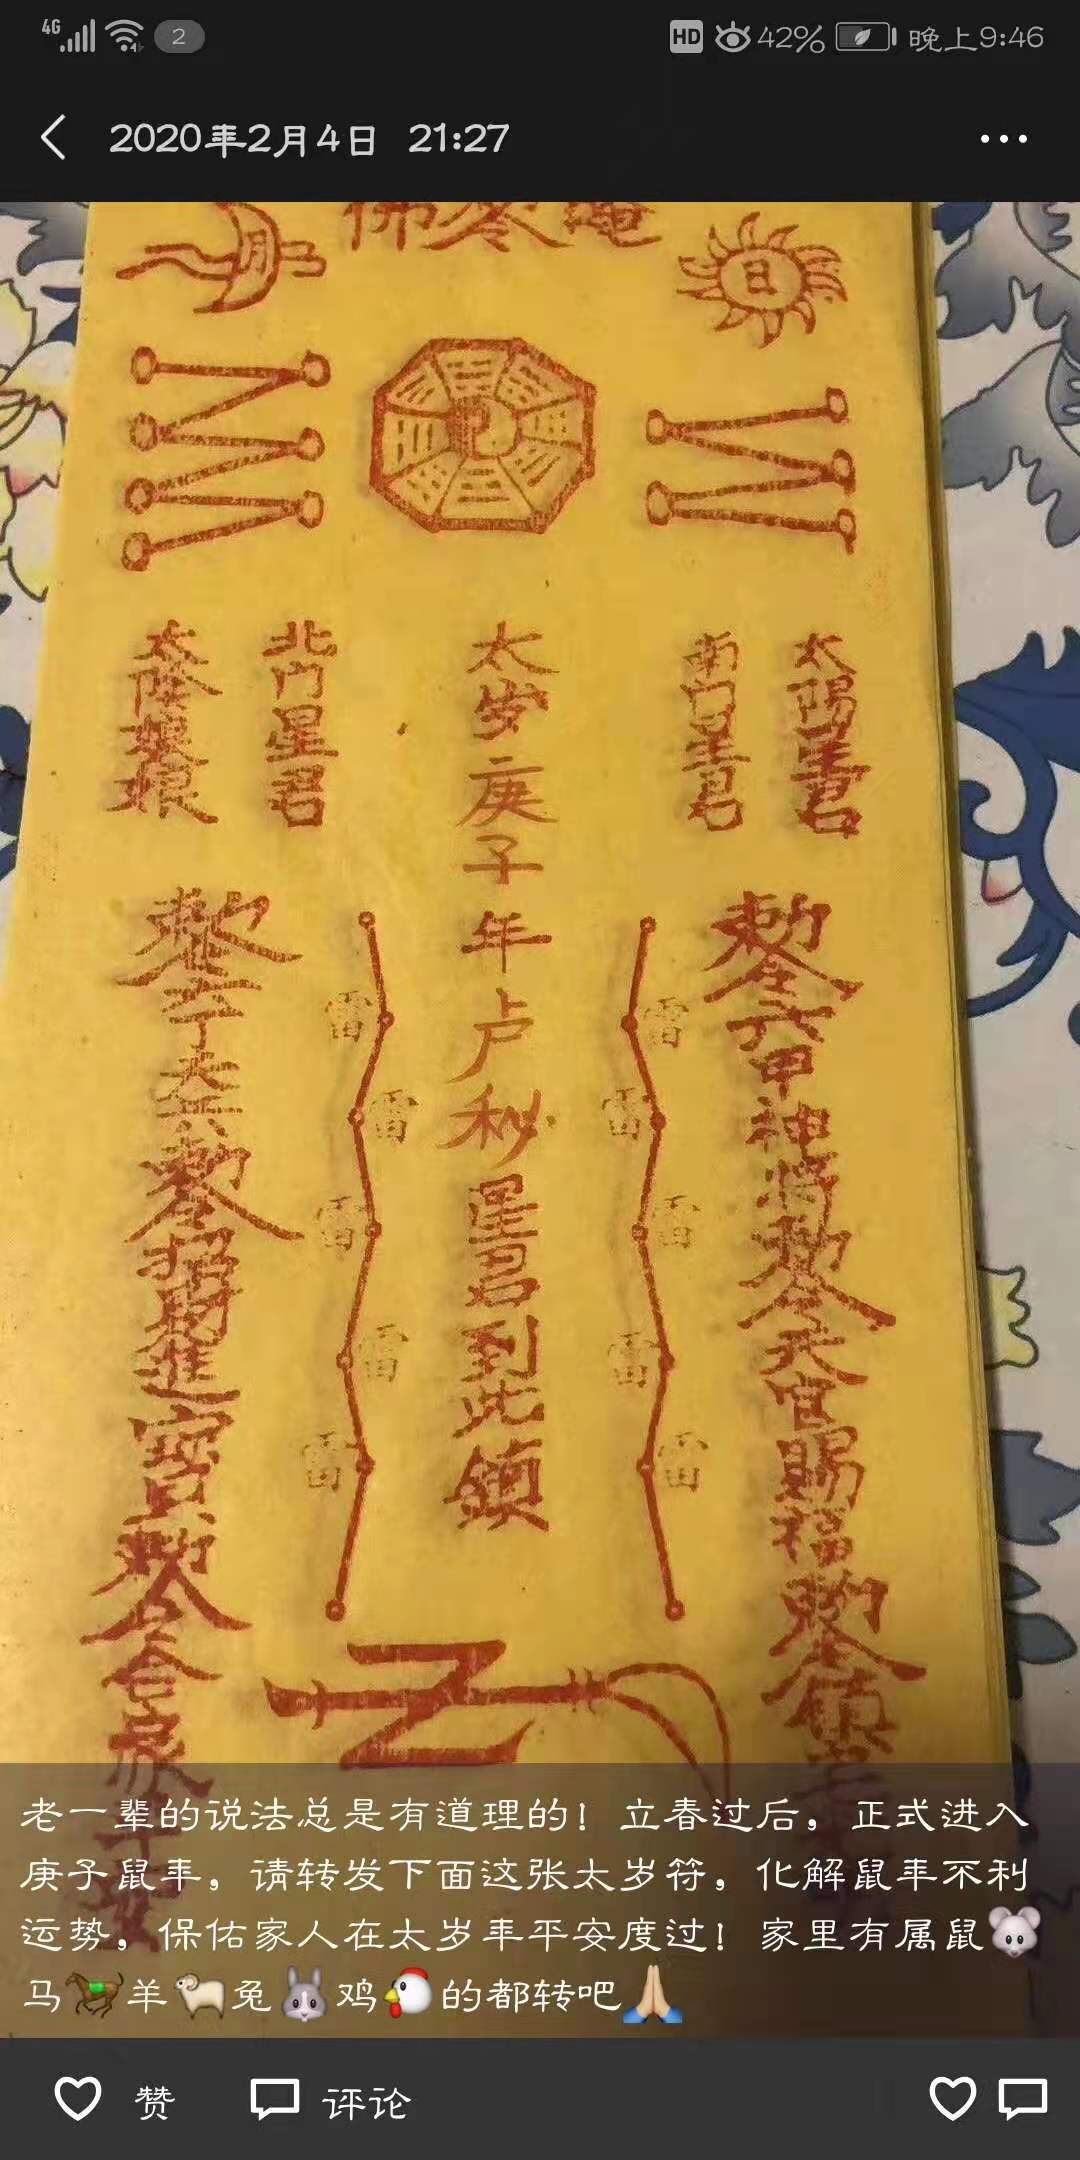 4G 2 HD 42% 晚上9:46
2020年2月4日 21:27
佛
月
日
太陽星君
南門星君
太安庚子年卢秘星君到此鎮
北門星君
太陰娘娘
雷 雷 雷 雷 雷
雷 雷 雷 雷 雷
勅令六甲神將勅令天官賜福勅令鎮宅
勅令六丁天兵勅令招財進寶勅令合家平安
老一辈的说法总是有道理的！立春过后，正式进入
庚子鼠年，请转发下面这张太岁符，化解鼠年不利
运势，保佑家人在太岁年平安度过！家里有属鼠🐭
马🐎羊🐏兔🐰鸡🐔的都转吧🙏🏻
赞 评论